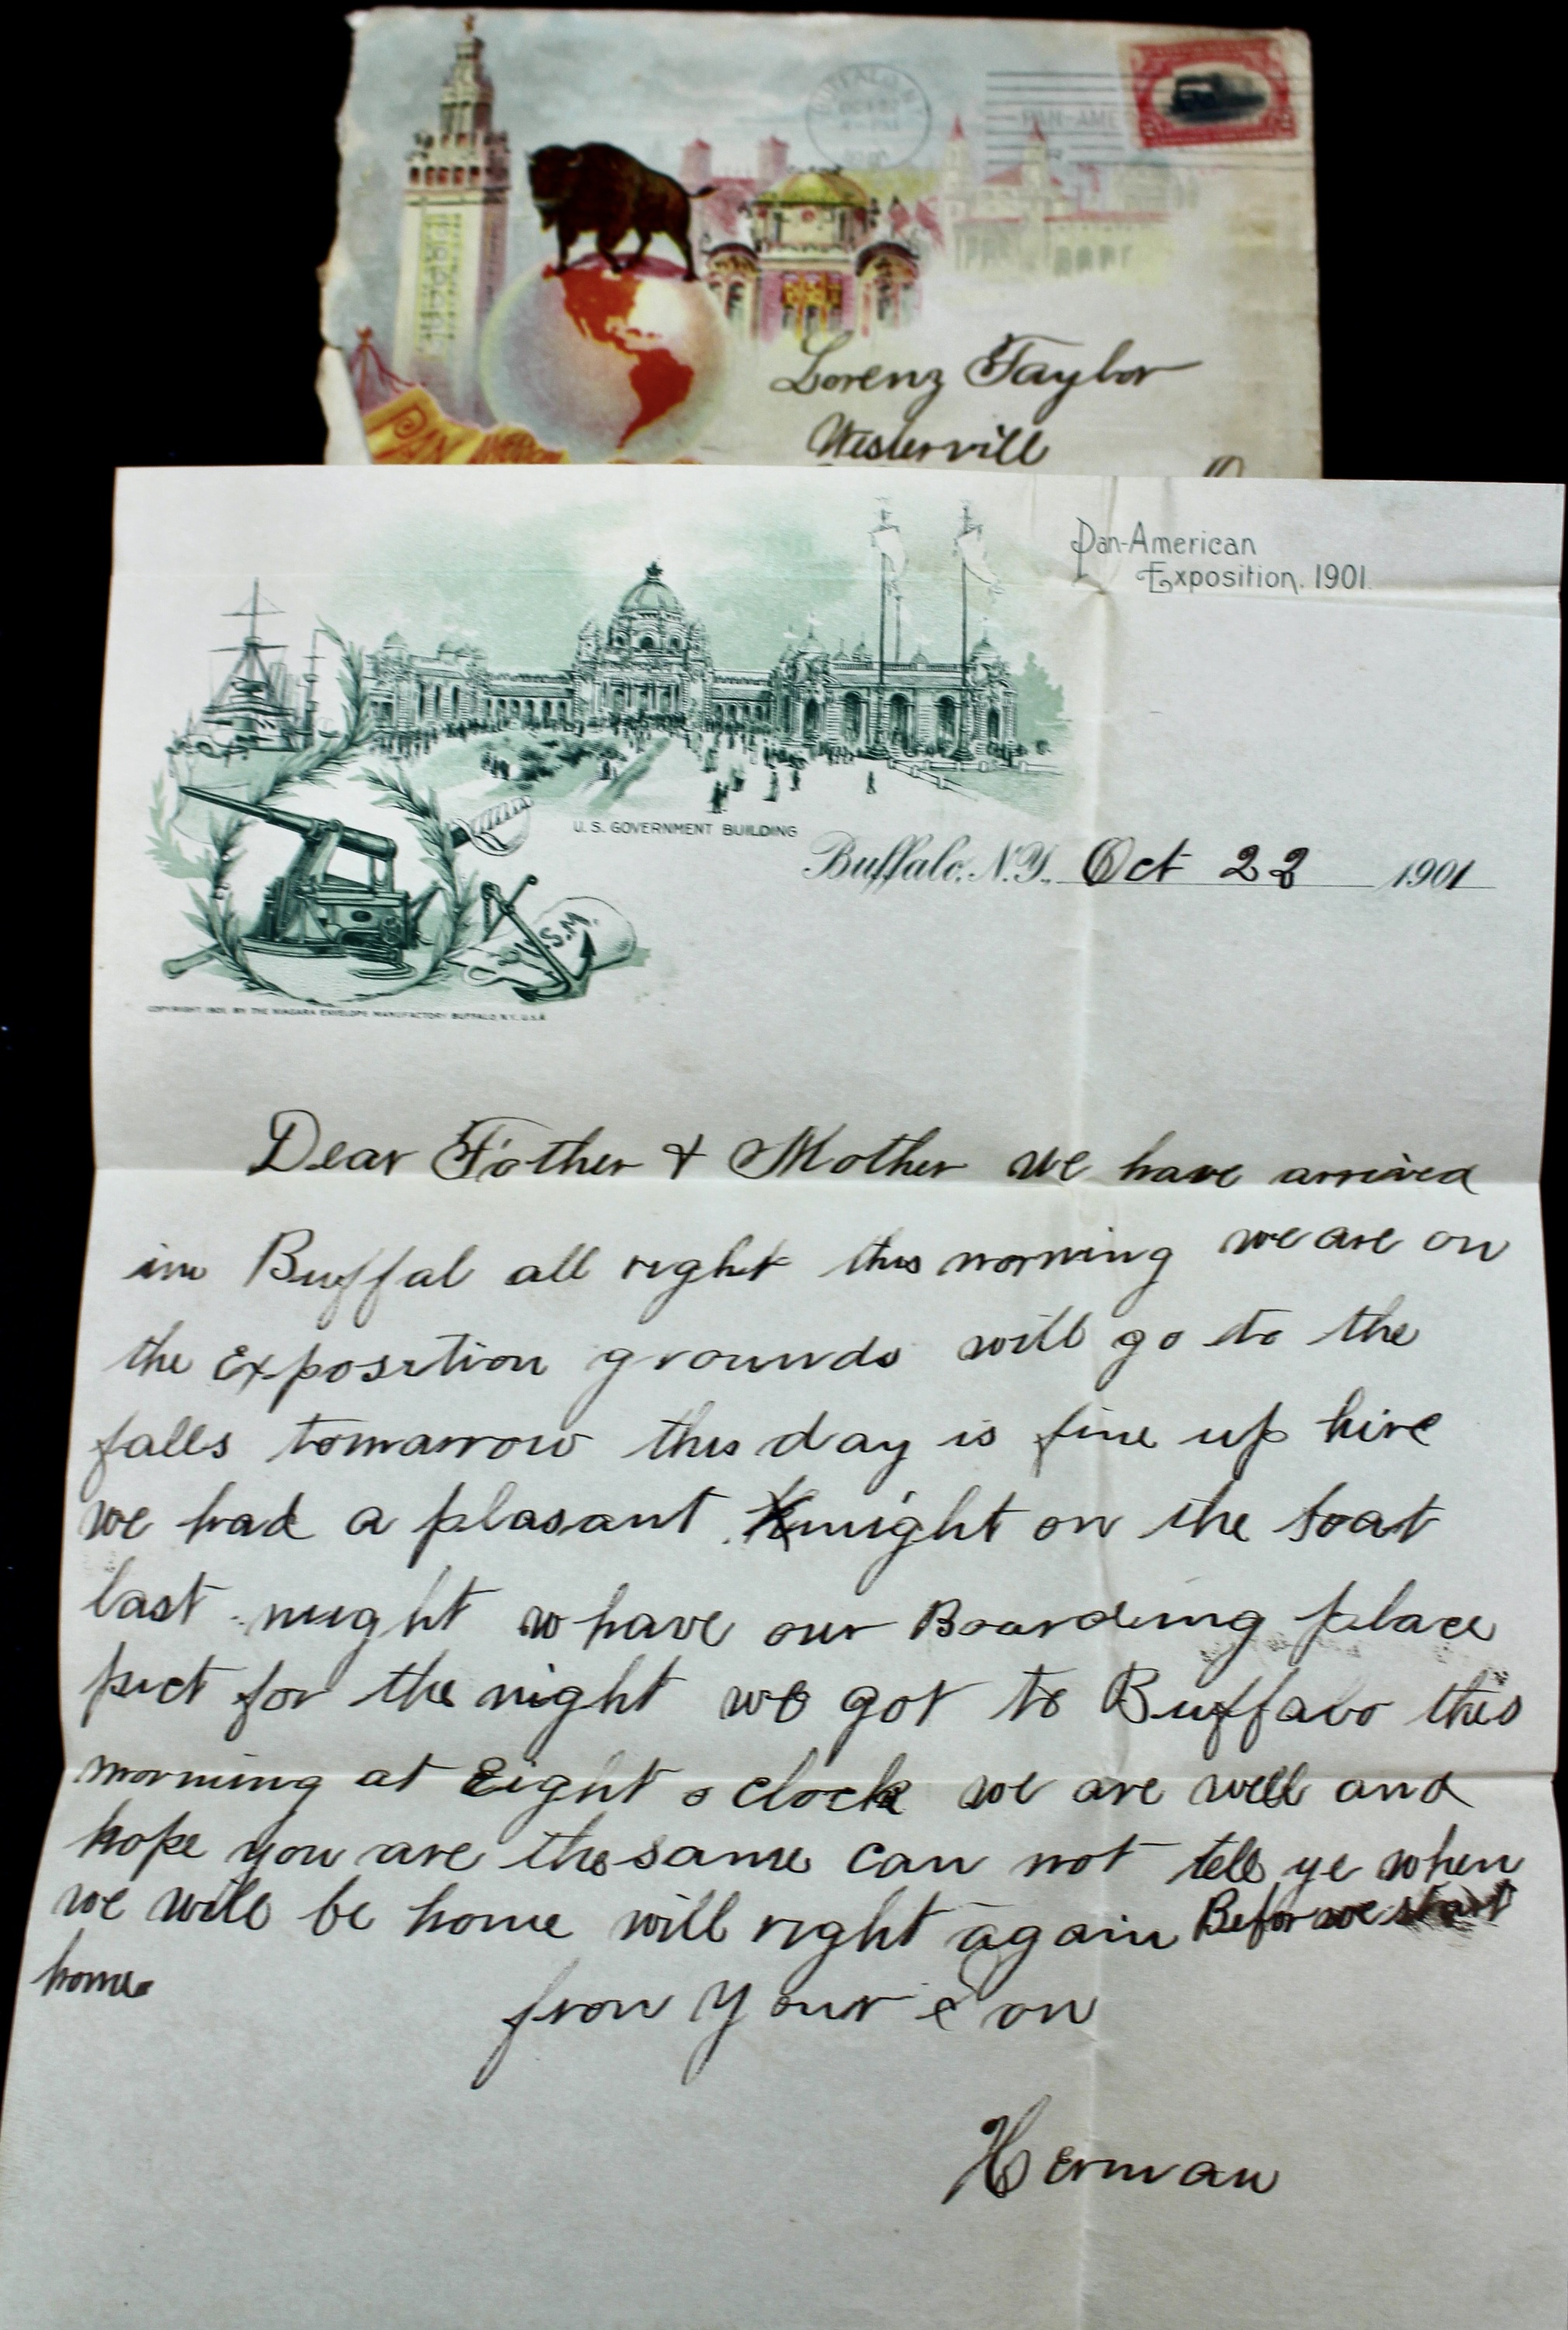 BUFFALO, N.Y.
PAN-AME
Lorenz Taylor
Westervill
PAN
Pan-American
Exposition, 1901.
U.S. GOVERNMENT BUILDING
Buffalo, N.Y., Oct 22 1901
U.S.M.
COPYRIGHT 1901, BY THE NIAGARA ENVELOPE MANUFACTORY BUFFALO, N.Y., U.S.A.
Dear Father & Mother we have arrived
in Buffal all right this morning we are on
the Exposition grounds will go to the
falls tomarrow this day is fine up hire
we had a plasant night on the boat
last night w have our Boarding place
pict for the night we got to Buffalo this
morning at Eight o clock we are well and
hope you are the same can not tell ye when
we will be home will right again Befor we start
home
from Your Son
Herman